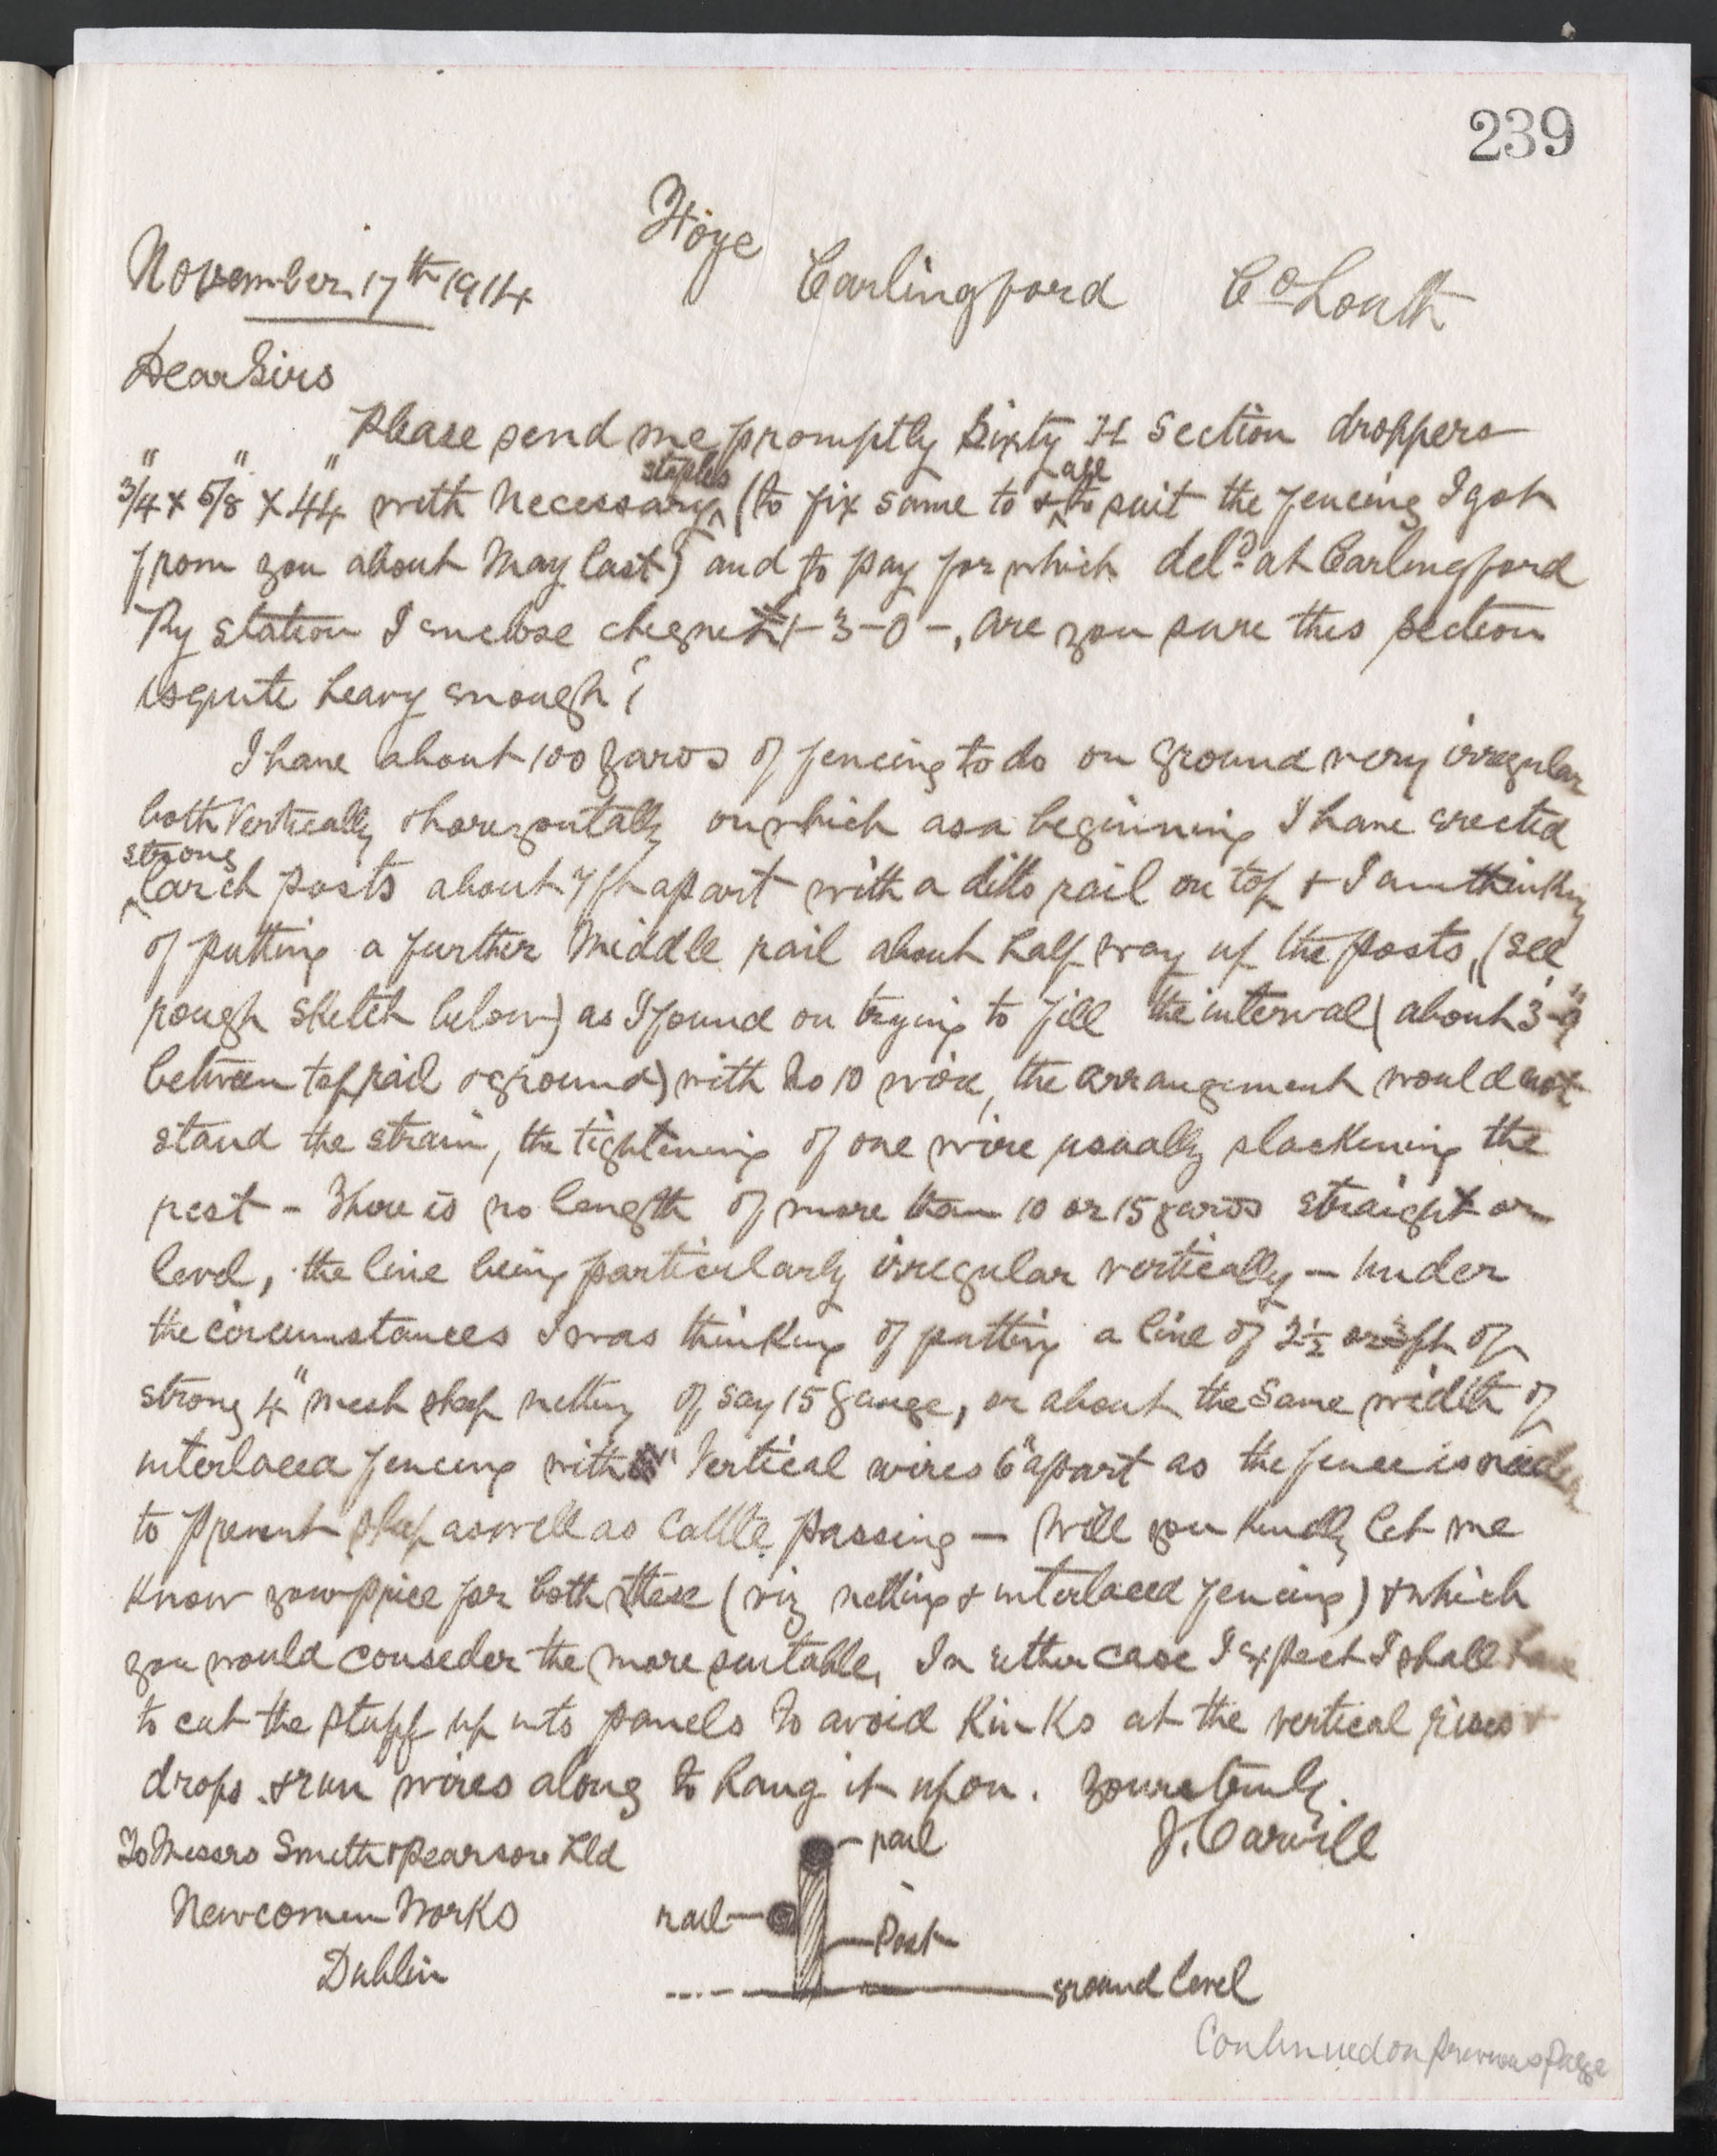 239
Hoye
November 17th 1914 Carlingford Co Louth
Dear Sirs
Please send me promptly Sixty H Section droppers
3/4" x 5/8" x 44" with necessary staples (to fix same to & all to suit the fencing I got
from you about May last) and to pay for which deld at Carlingford
Ry station I enclose cheque £1-3-0-, are you sure this section
is quite heavy enough?
I have about 100 yards of fencing to do on ground very irregular
both vertically & horizontally on which as a beginning I have erected
strong
larch posts about 7 ft apart with a ditto rail on top & I am thinking
of putting a further middle rail about half way up the posts, (see
rough sketch below) as I found on trying to fill the interval (about 3'-9"
between top rail & ground) with No 10 wire, the arrangement would not
stand the strain, the tightening of one wire usually slackening the
rest - There is no length of more than 10 or 15 yards straight or
level, the line being particularly irregular vertically - Under
the circumstances I was thinking of putting a line of 2½ or 3 ft of
strong 4" mesh sheep netting of say 15 gauge, or about the same width of
interlaced fencing with vertical wires 6" apart as the fence is needed
to prevent sheep as well as cattle passing - Will you kindly let me
know your price for both these (viz netting & interlaced fencing) & which
you would consider the more suitable, In either case I expect I shall have
to cut the stuff up into panels to avoid kinks at the vertical rises &
drops & run wires along to hang it upon. Yours truly
J. Carvill
To Messrs Smith & Pearson Ltd
Newcomen Works
Dublin
rail
rail
Post
ground level
Continued on previous page